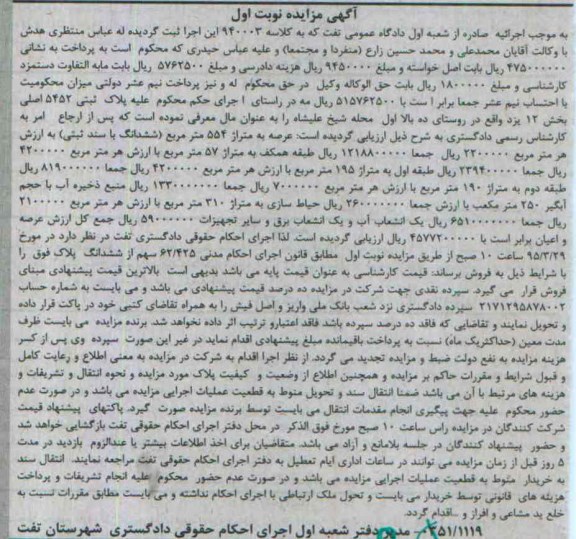 آگهی مزایده نوبت اول
به موجب اجرائیه صادره از شعبه اول دادگاه عمومی تفت که به کلاسه ۹۴۰۰۰۳ این اجرا ثبت گردیده له عباس منتظری هدش
با وکالت آقایان محمدعلی و محمد حسین زارع (منفردا و مجتمعا) و علیه عباس حیدری که محکوم است به پرداخت به نشانی
۴۷۵۰۰۰۰۰۰ ریال بابت اصل خواسته و مبلغ ۹۴۵۰۰۰۰ ریال هزینه دادرسی و مبلغ ۵۷۶۲۵۰۰ ریال بابت مابه التفاوت دستمزد
کارشناسی و مبلغ ۱۸۰۰۰۰۰ ریال بابت حق الوکاله وکیل در حق محکوم له و نیز پرداخت نیم عشر دولتی میزان محکومیت
با احتساب نیم عشر جمعا برابر است با ۵۱۵۷۶۲۵۰۰ ریال مه در راستای اجرای حکم محکوم علیه پلاک ثبتی ۵۴۵۲ اصلی
بخش ۱۲ یزد واقع در روستای ده بالا اول محله شیخ علیشاه را به عنوان مال معرفی نموده است که پس از ارجاع امر به
کارشناس رسمی دادگستری به شرح ذیل ارزیابی گردیده است: عرصه به متراژ ۵۵۴ متر مربع (ششدانگ با سند ثبتی) به ارزش
هر متر مربع ۲۲۰۰۰۰۰ ریال جمعا ۱۲۱۸۸۰۰۰۰۰ ریال طبقه همکف به متراژ ۵۷ متر مربع با ارزش هر متر مربع ۴۲۰۰۰۰۰
ریال جمعا ۲۳۹۴۰۰۰۰۰ ریال طبقه اول به متراژ ۱۹۵ متر مربع با ارزش هر متر مربع ۴۲۰۰۰۰۰ ریال جمعا ۸۱۹۰۰۰۰۰۰ ریال
طبقه دوم به متراژ ۱۹۰ متر مربع با ارزش هر متر مربع ۷۰۰۰۰۰۰ ریال جمعا ۱۳۳۰۰۰۰۰۰۰ ریال منبع ذخیره آب با حجم
آبگیر ۲۵۰ متر مکعب با ارزش جمعا ۲۶۰۰۰۰۰۰۰ ریال حیاط سازی به متراژ ۳۱۰ متر مربع با ارزش هر متر مربع ۲۱۰۰۰۰۰
ریال جمعا ۶۵۱۰۰۰۰۰۰ ریال یک انشعاب آب و یک انشعاب برق و سایر تجهیزات ۵۹۰۰۰۰۰۰ ریال جمع کل ارزش عرصه
و اعیان برابر است با ۴۵۷۷۲۰۰۰۰۰ ریال ارزیابی گردیده است. لذا اجرای احکام حقوقی دادگستری تفت در نظر دارد در مورخ
۹۵/۳/۲۹ ساعت ۱۰ صبح از طریق مزایده نوبت اول مطابق قانون اجرای احکام مدنی ۶۲/۴۲۵ سهم از ششدانگ پلاک فوق را
با شرایط ذیل به فروش برساند: قیمت کارشناسی به عنوان قیمت پایه می باشد بدیهی است بالاترین قیمت پیشنهادی مبنای
فروش قرار می گیرد. سپرده نقدی جهت شرکت در مزایده ده درصد قیمت پیشنهادی می باشد و می بایست به شماره حساب
۲۱۷۱۲۹۵۸۷۸۰۰۲ سپرده دادگستری نزد شعب بانک ملی واریز و اصل فیش را به همراه تقاضای کتبی خود در پاکت قرار داده
و تحویل نمایند و تقاضایی که فاقد ده درصد سپرده باشد فاقد اعتبارو ترتیب اثر داده نخواهد شد. برنده مزایده می بایست ظرف
مدت معین (حداکثریک ماه) نسبت به پرداخت باقیمانده مبلغ پیشنهادی اقدام نماید در غیر این صورت سپرده وی پس از کسر
هزینه مزایده به نفع دولت ضبط و مزایده تجدید می گردد. از نظر اجرا اقدام به شرکت در مزایده به معنی اطلاع و رعایت کامل
و قبول شرایط و مقررات حاکم بر مزایده و همچنین اطلاع از وضعیت و کیفیت پلاک مورد مزایده و نحوه انتقال و تشریفات و
هزینه های مرتبط با آن می باشد ضمنا انتقال سند و تحویل منوط به قطعیت عملیات اجرایی مزایده می باشد و در صورت عدم
حضور محکوم علیه جهت پیگیری انجام مقدمات انتقال می بایست توسط برنده مزایده صورت گیرد. پاکتهای پیشنهاد قیمت
شرکت کنندگان در مزایده راس ساعت ۱۰ صبح مورخ فوق الذکر در محل دفتر اجرای احکام حقوقی تفت بازگشایی خواهد شد
و حضور پیشنهاد کنندگان در جلسه بلامانع و آزاد می باشد. متقاضیان برای اخذ اطلاعات بیشتر یا عندالزوم بازدید در مدت
۵ روز قبل از زمان مزایده می توانند در ساعات اداری ایام تعطیل به دفتر اجرای احکام حقوقی تفت مراجعه نمایند. انتقال سند
به خریدار منوط به قطعیت عملیات اجرایی مزایده می باشد و در صورت عدم حضور محکوم علیه انجام تشریفات و پرداخت
هزینه های قانونی توسط خریدار می بایست و تحول ملک ارتباطی با اجرای احکام نداشته و می بایست مطابق مقررات نسبت به
خلع ید مشاعی و افراز و ...اقدام گردد.
۰۳۵۱/۱۱۱۹ مدیر دفتر شعبه اول اجرای احکام حقوقی دادگستری شهرستان تفت